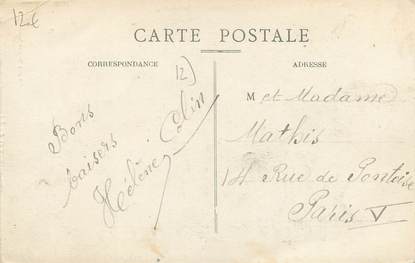 12€
CARTE POSTALE
CORRESPONDANCE
ADRESSE
12)
Bons
baisers
Hélène Colin
M et Madame
Mathis
14 Rue de Pontoise
Paris V